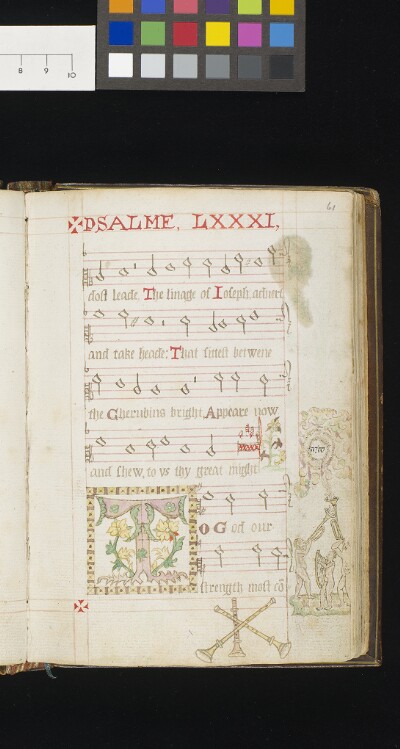 8 9 10
61
PSALME. LXXXI,
dost leade The linage of Ioseph,
and take heede: That sittest betwene
the Cherubins bright Appeare now
and shew, to vs thy great might
TO God our
strength most cõ